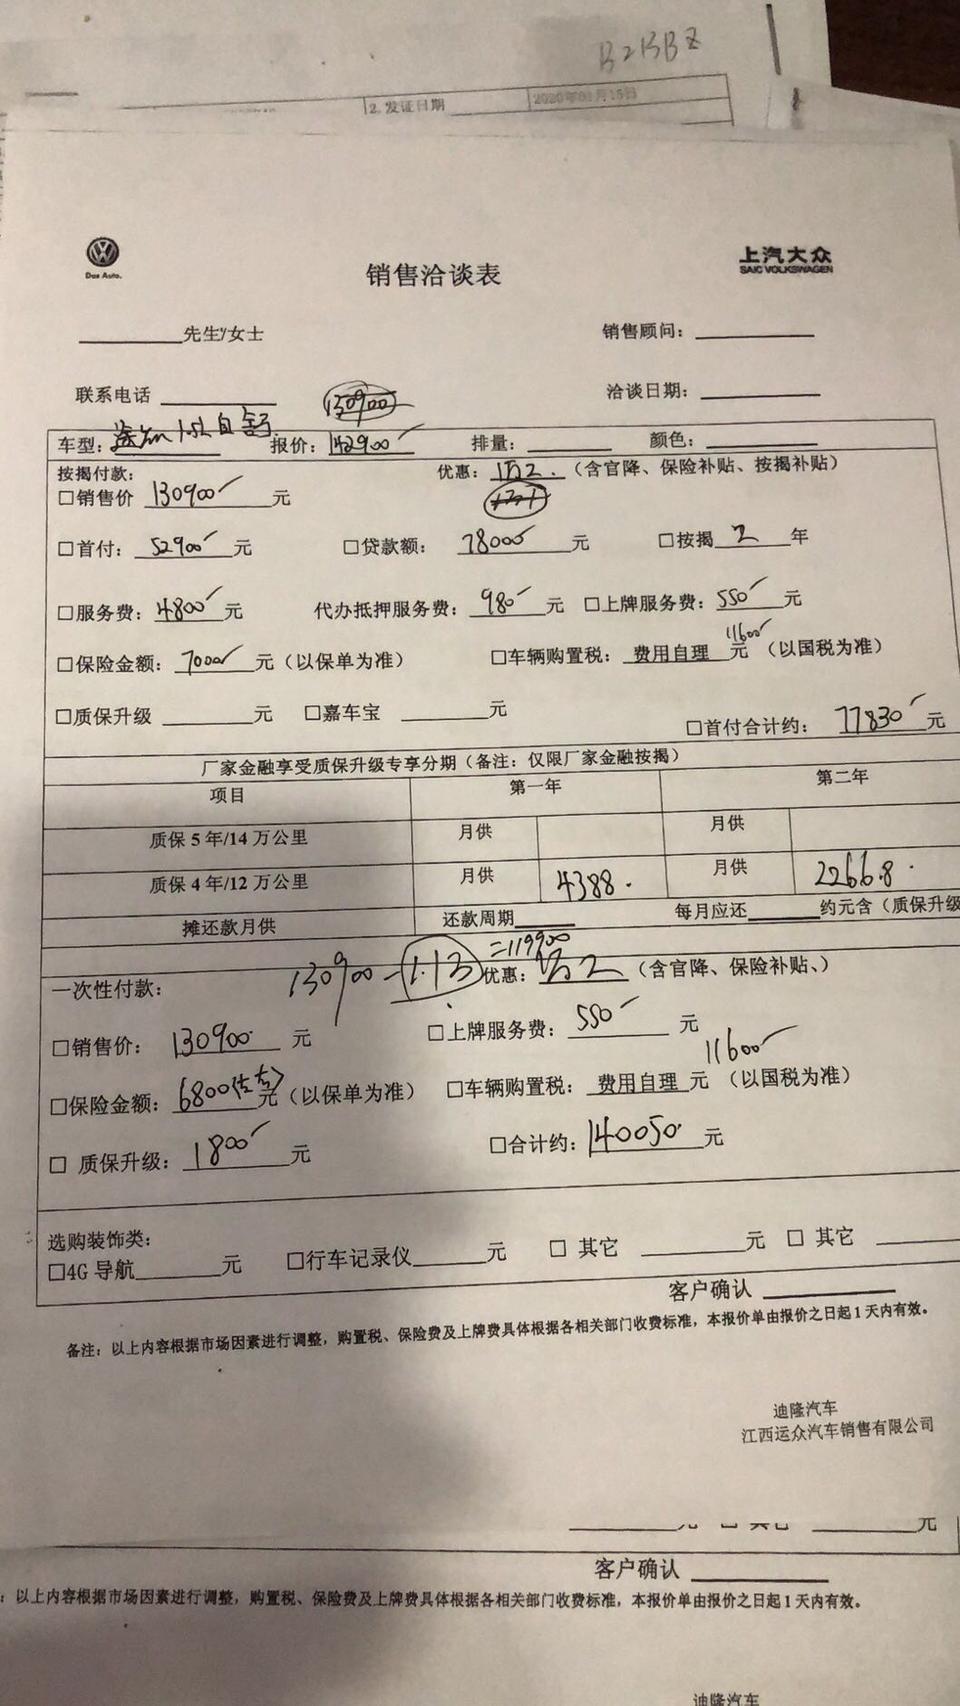 B2BBZ
2. 发证日期 2020年01月15日
Das Auto.
上汽大众
SAIC VOLKSWAGEN
销售洽谈表
先生/女士 销售顾问：
联系电话 洽谈日期：
130900
车型： 1.5L自 报价：142900 排量： 颜色：
按揭付款： 优惠：1万2.（含官降、保险补贴、按揭补贴）
□销售价 130900 元
□首付：52900 元 □贷款额：78000 元 □按揭 2 年
□服务费：4800 元 代办抵押服务费：980 元 □上牌服务费：550 元
11600
□保险金额：7000 元（以保单为准） □车辆购置税：费用自理 元（以国税为准）
□质保升级 元 □嘉车宝 元
□首付合计约：77830 元
厂家金融享受质保升级专享分期（备注：仅限厂家金融按揭）
项目 第一年 第二年
质保 5 年/14 万公里 月供 月供
质保 4 年/12 万公里 月供 4388. 月供 2266.8.
摊还款月供 还款周期 每月应还 约元含（质保升级
130900-1.13=119900
一次性付款： 优惠：1万2（含官降、保险补贴、）
□销售价：130900 元 □上牌服务费：550 元
11600
□保险金额：6800(左右)元（以保单为准） □车辆购置税：费用自理 元（以国税为准）
□ 质保升级：1800 元 □合计约：140050 元
选购装饰类：
□4G 导航 元 □行车记录仪 元 □ 其它 元 □ 其它
客户确认
备注：以上内容根据市场因素进行调整，购置税、保险费及上牌费具体根据各相关部门收费标准，本报价单由报价之日起 1 天内有效。
迪隆汽车
江西运众汽车销售有限公司
元 □ 其它 元
客户确认
：以上内容根据市场因素进行调整，购置税、保险费及上牌费具体根据各相关部门收费标准，本报价单由报价之日起 1 天内有效。
迪隆汽车